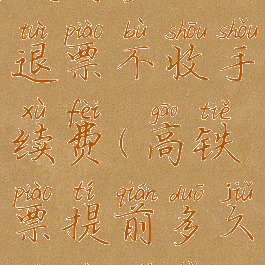 tuì piào bù shōu shǒu
退票不收手
xù fèi gāo tiě
续费(高铁
piào tí qián duō jiǔ
票提前多久